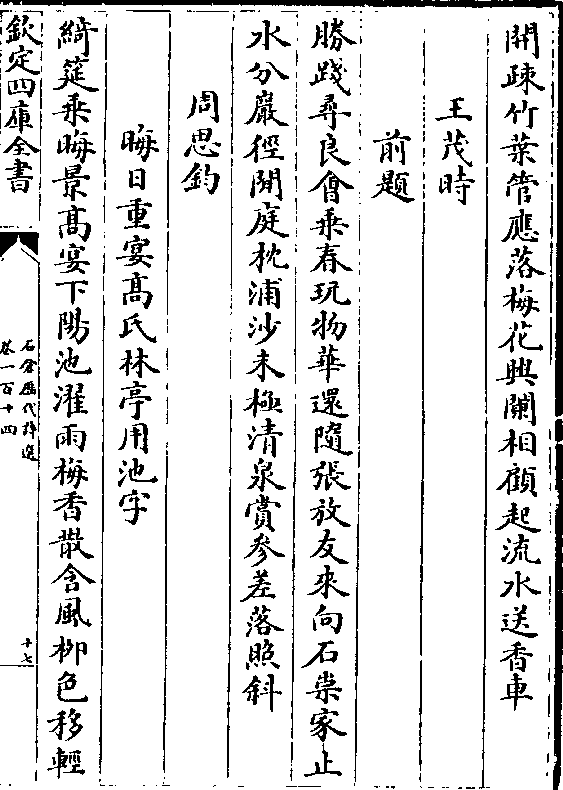 開疎竹葉管應落梅花興闌相顧起流水送香車
王茂時
前題
勝踐尋良會乘春玩物華還隨張放友來向石崇家止
水分巖徑閒庭枕浦沙未極清泉賞參差落照斜
周思鈞
晦日重宴髙氏林亭用池字
綺筵乘晦景髙宴下陽池濯雨梅香散含風柳色移輕
欽定四庫全書
石倉歷代詩選
卷一百十四
十七